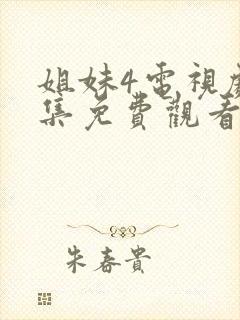 姐妹4電視劇
集免費觀看
朱春貴